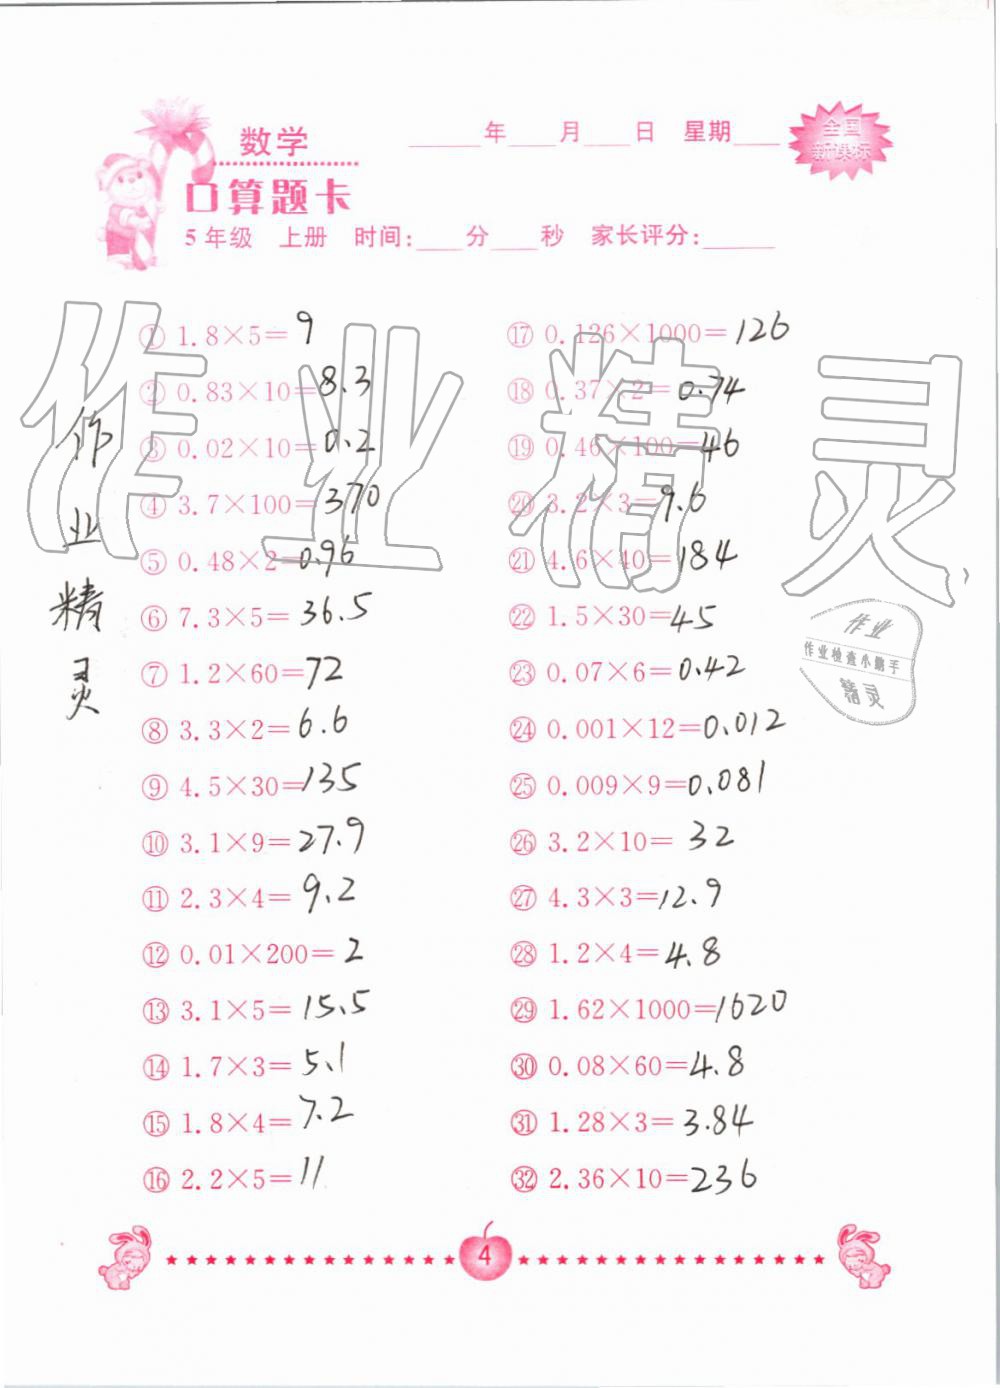 数学
____年____月____日 星期____
全国
新课标
口算题卡
5年级 上册 时间:____分____秒 家长评分:______
① 1.8×5=9
② 0.83×10=8.3
③ 0.02×10=0.2
④ 3.7×100=370
⑤ 0.48×2=0.96
⑥ 7.3×5=36.5
⑦ 1.2×60=72
⑧ 3.3×2=6.6
⑨ 4.5×30=135
⑩ 3.1×9=27.9
⑪ 2.3×4=9.2
⑫ 0.01×200=2
⑬ 3.1×5=15.5
⑭ 1.7×3=5.1
⑮ 1.8×4=7.2
⑯ 2.2×5=11
⑰ 0.126×1000=126
⑱ 0.37×2=0.74
⑲ 0.46×100=46
⑳ 3.2×3=9.6
㉑ 4.6×40=184
㉒ 1.5×30=45
㉓ 0.07×6=0.42
㉔ 0.001×12=0.012
㉕ 0.009×9=0.081
㉖ 3.2×10=32
㉗ 4.3×3=12.9
㉘ 1.2×4=4.8
㉙ 1.62×1000=1620
㉚ 0.08×60=4.8
㉛ 1.28×3=3.84
㉜ 2.36×10=236
作业精灵
作业精灵
作业
作业检查小助手
精灵
4